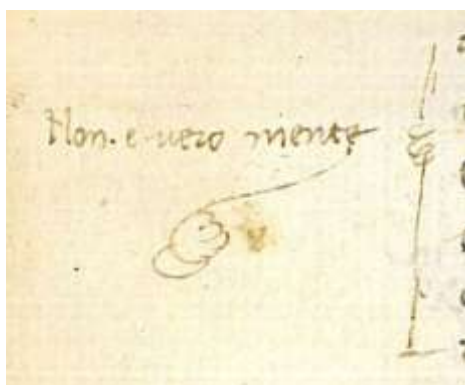 Non. e uero niente